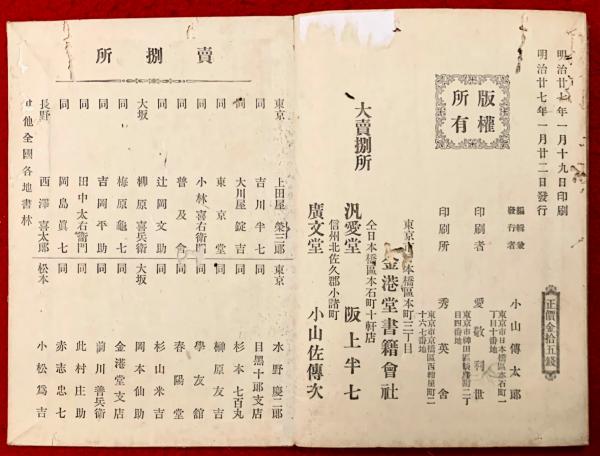 明治廿七年一月十九日印刷
明治廿七年一月廿二日發行
版權所有
正價金拾五錢
編輯兼發行者
小山傳太郎
東京市日本橋區本石町一丁目十番地
印刷者
愛敬利世
東京市神田區
丁目四番地
印刷所
秀英舍
東京市京橋區西紺屋町二十六七番地
大賣捌所
東京市日本橋區本町三丁目
金港堂書籍會社
仝日本橋區本石町十軒店
汎愛堂 阪上半七
信州北佐久郡小諸町
廣文堂 小山佐傳次
賣捌所
東京 上田屋 榮三郎
同 吉川半七
同 大川屋錠吉
同 東京堂
同 小林喜右衛門
同 普及舍
同 辻岡文助
大坂 柳原喜兵衛
同 梅原龜七
同 吉岡平助
同 田中太右衛門
同 岡島眞七
長野 西澤喜太郎
東京 水野慶二郎
同 目黑十郎支店
同 杉本七百丸
同 榊原友吉
同 學友館
同 春陽堂
同 杉山米吉
大坂 岡本仙助
同 金港堂支店
同 前川善兵衛
同 此村庄助
同 赤志忠七
松本 小松爲吉
其他全國各地書林